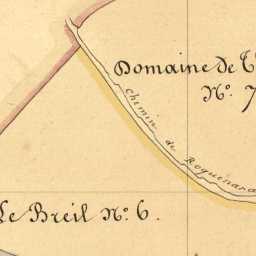 Domaine de
No. 7
Chemin de
Le Breil No. 6.